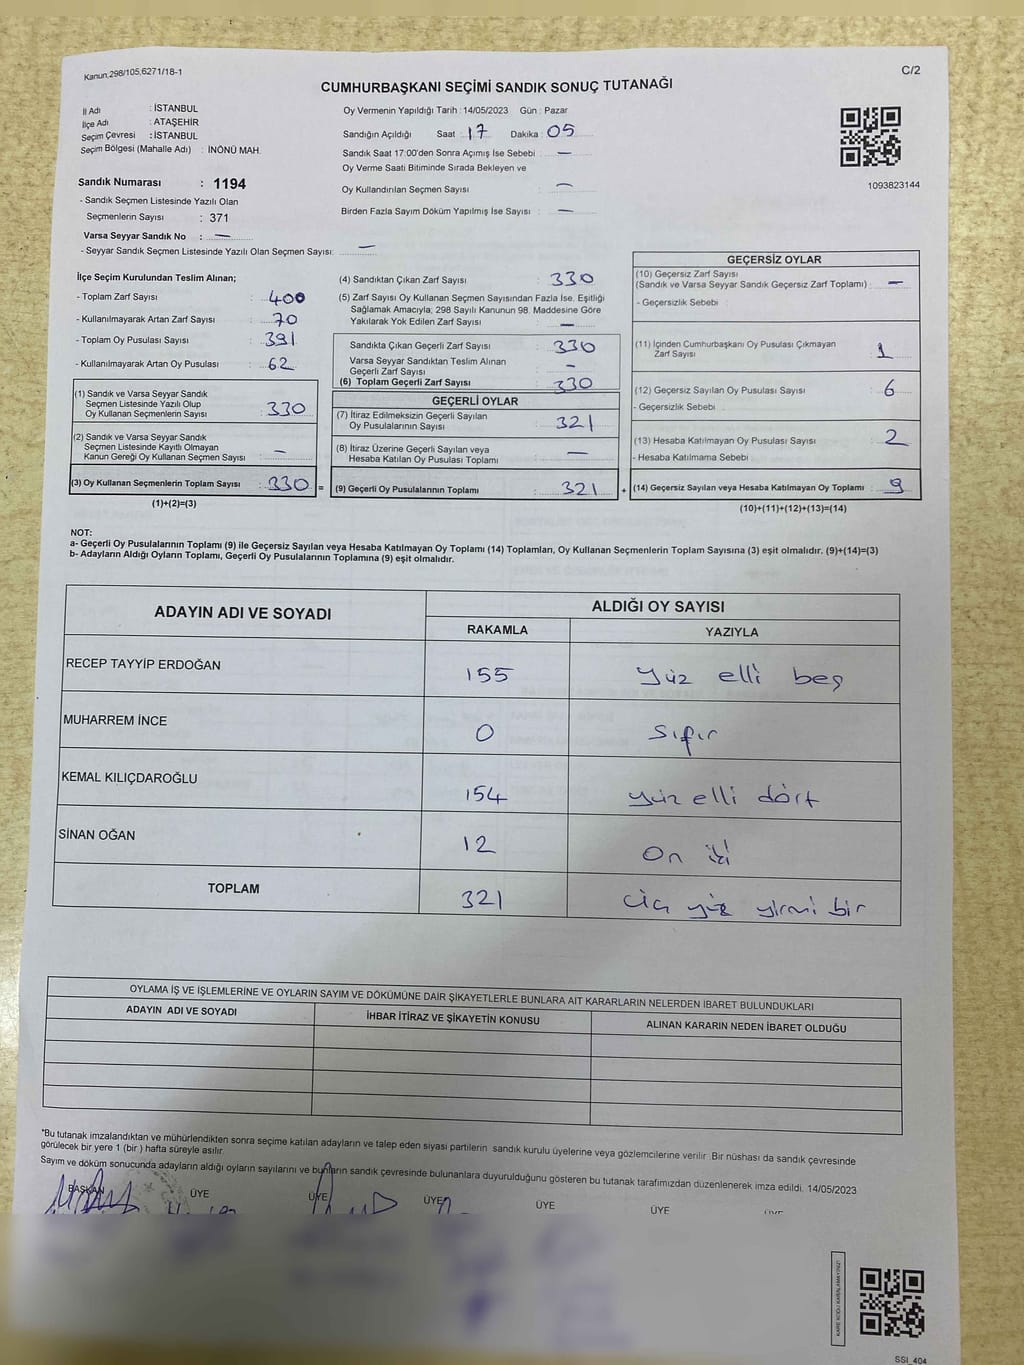 Kanun,298/105,6271/18-1
C/2
CUMHURBAŞKANI SEÇİMİ SANDIK SONUÇ TUTANAĞI
İl Adı : İSTANBUL
İlçe Adı : ATAŞEHİR
Seçim Çevresi : İSTANBUL
Seçim Bölgesi (Mahalle Adı) : İNÖNÜ MAH.
Sandık Numarası : 1194
- Sandık Seçmen Listesinde Yazılı Olan
Seçmenlerin Sayısı : 371
Varsa Seyyar Sandık No : —
- Seyyar Sandık Seçmen Listesinde Yazılı Olan Seçmen Sayısı: —
Oy Vermenin Yapıldığı Tarih : 14/05/2023 Gün : Pazar
Sandığın Açıldığı Saat : 17 Dakika : 05
Sandık Saat 17:00'den Sonra Açımış İse Sebebi : —
Oy Verme Saati Bitiminde Sırada Bekleyen ve
Oy Kullandırılan Seçmen Sayısı : —
Birden Fazla Sayım Döküm Yapılmış İse Sayısı : —
1093823144
İlçe Seçim Kurulundan Teslim Alınan;
- Toplam Zarf Sayısı : 400
- Kullanılmayarak Artan Zarf Sayısı : 70
- Toplam Oy Pusulası Sayısı : 391
- Kullanılmayarak Artan Oy Pusulası : 62
(1) Sandık ve Varsa Seyyar Sandık
Seçmen Listesinde Yazılı Olup
Oy Kullanan Seçmenlerin Sayısı : 330
(2) Sandık ve Varsa Seyyar Sandık
Seçmen Listesinde Kayıtlı Olmayan
Kanun Gereği Oy Kullanan Seçmen Sayısı : —
(3) Oy Kullanan Seçmenlerin Toplam Sayısı : 330 =
(1)+(2)=(3)
(4) Sandıktan Çıkan Zarf Sayısı : 330
(5) Zarf Sayısı Oy Kullanan Seçmen Sayısından Fazla İse, Eşitliği
Sağlamak Amacıyla; 298 Sayılı Kanunun 98. Maddesine Göre
Yakılarak Yok Edilen Zarf Sayısı : —
Sandıkta Çıkan Geçerli Zarf Sayısı : 330
Varsa Seyyar Sandıktan Teslim Alınan
Geçerli Zarf Sayısı : —
(6) Toplam Geçerli Zarf Sayısı : 330
GEÇERLİ OYLAR
(7) İtiraz Edilmeksizin Geçerli Sayılan
Oy Pusulalarının Sayısı : 321
(8) İtiraz Üzerine Geçerli Sayılan veya
Hesaba Katılan Oy Pusulası Toplamı : —
(9) Geçerli Oy Pusulalarının Toplamı : 321 +
GEÇERSİZ OYLAR
(10) Geçersiz Zarf Sayısı
(Sandık ve Varsa Seyyar Sandık Geçersiz Zarf Toplamı) : —
- Geçersizlik Sebebi :
(11) İçinden Cumhurbaşkanı Oy Pusulası Çıkmayan
Zarf Sayısı : 1
(12) Geçersiz Sayılan Oy Pusulası Sayısı : 6
- Geçersizlik Sebebi :
(13) Hesaba Katılmayan Oy Pusulası Sayısı : 2
- Hesaba Katılmama Sebebi :
(14) Geçersiz Sayılan veya Hesaba Katılmayan Oy Toplamı : 9
(10)+(11)+(12)+(13)=(14)
NOT:
a- Geçerli Oy Pusulalarının Toplamı (9) ile Geçersiz Sayılan veya Hesaba Katılmayan Oy Toplamı (14) Toplamları, Oy Kullanan Seçmenlerin Toplam Sayısına (3) eşit olmalıdır. (9)+(14)=(3)
b- Adayların Aldığı Oyların Toplamı, Geçerli Oy Pusulalarının Toplamına (9) eşit olmalıdır.
ADAYIN ADI VE SOYADI
ALDIĞI OY SAYISI
RAKAMLA YAZIYLA
RECEP TAYYİP ERDOĞAN 155 Yüz elli beş
MUHARREM İNCE 0 Sıfır
KEMAL KILIÇDAROĞLU 154 yüz elli dört
SİNAN OĞAN 12 On iki
TOPLAM 321 üç yüz yirmi bir
OYLAMA İŞ VE İŞLEMLERİNE VE OYLARIN SAYIM VE DÖKÜMÜNE DAİR ŞİKAYETLERLE BUNLARA AİT KARARLARIN NELERDEN İBARET BULUNDUKLARI
ADAYIN ADI VE SOYADI İHBAR İTİRAZ VE ŞİKAYETİN KONUSU ALINAN KARARIN NEDEN İBARET OLDUĞU
*Bu tutanak imzalandıktan ve mühürlendikten sonra seçime katılan adayların ve talep eden siyasi partilerin sandık kurulu üyelerine veya gözlemcilerine verilir. Bir nüshası da sandık çevresinde
görülecek bir yere 1 (bir) hafta süreyle asılır.
Sayım ve döküm sonucunda adayların aldığı oyların sayılarını ve bunların sandık çevresinde bulunanlara duyurulduğunu gösteren bu tutanak tarafımızdan düzenlenerek imza edildi. 14/05/2023
BAŞKAN ÜYE ÜYE ÜYE ÜYE ÜYE ÜYE
KARE KODU KARALAMAYINIZ!
SSI_404